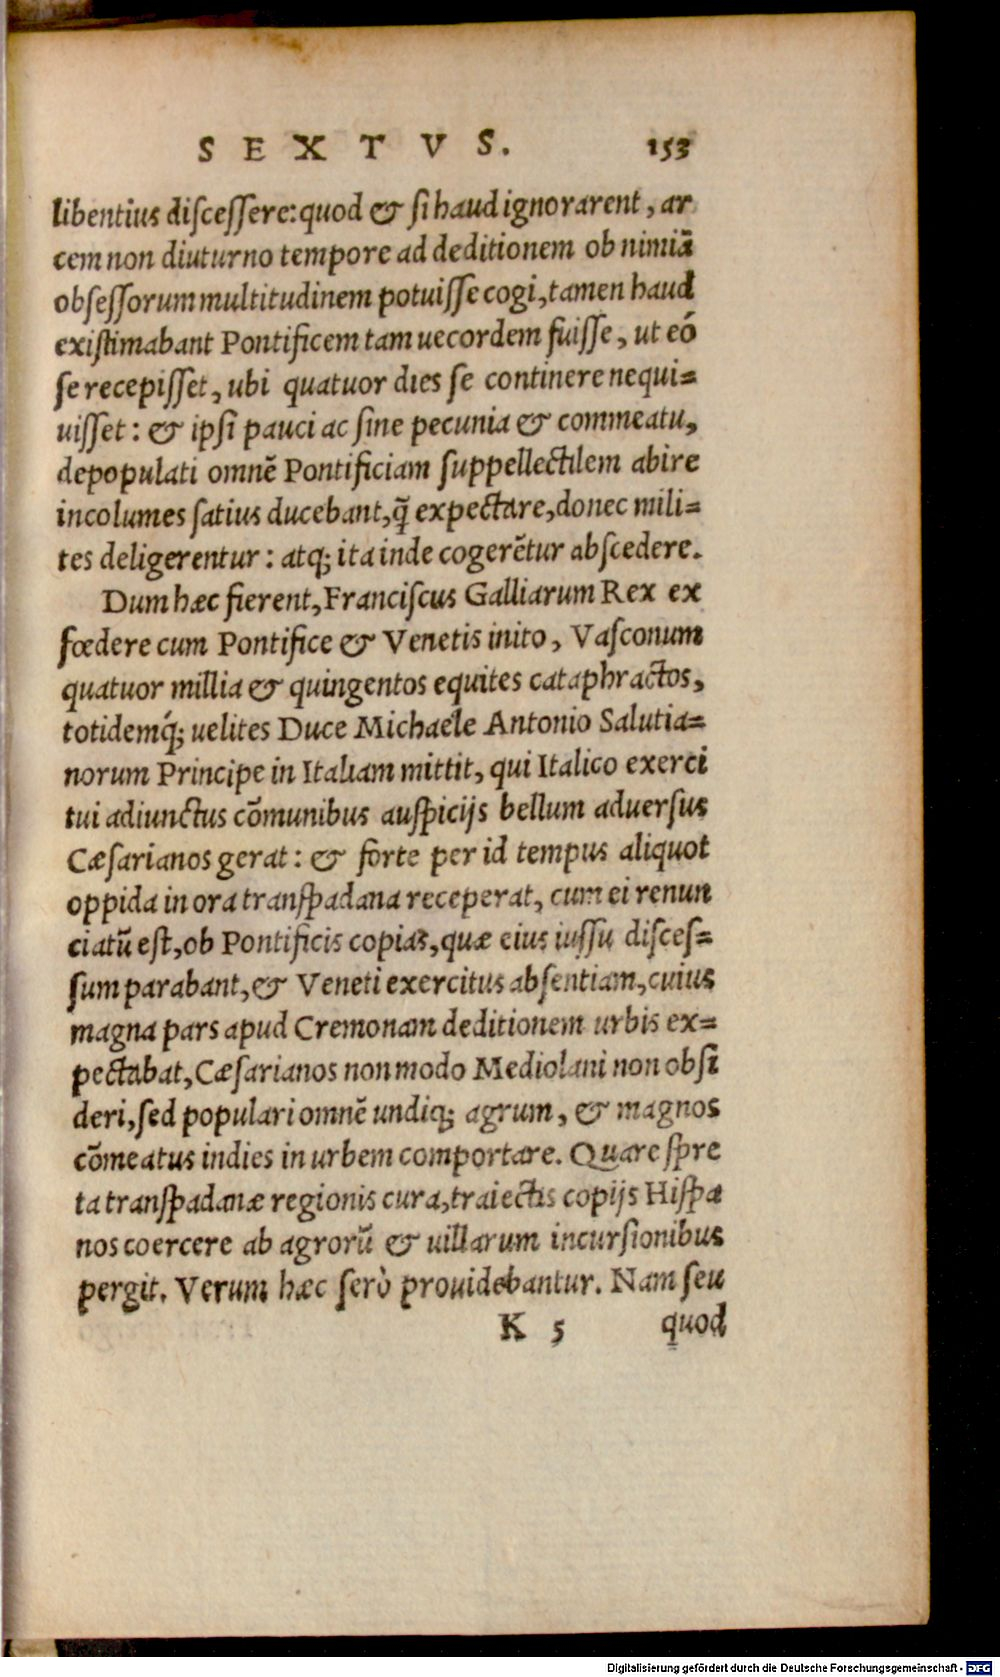 SEXTVS. 153
libentius discessere: quod & si haud ignorarent, ar
cem non diuturno tempore ad deditionem ob nimiā
obsessorum multitudinem potuisse cogi, tamen haud
existimabant Pontificem tam uecordem fuisse, ut eó
se recepisset, ubi quatuor dies se continere nequi=
uisset: & ipsi pauci ac sine pecunia & commeatu,
depopulati omnē Pontificiam suppellectilem abire
incolumes satius ducebant, q̄ expectare, donec mili=
tes deligerentur: atq; ita inde cogerētur abscedere.
Dum hæc fierent, Franciscus Galliarum Rex ex
fœdere cum Pontifice & Venetis inito, Vasconum
quatuor millia & quingentos equites cataphractos,
totidemq́; uelites Duce Michaële Antonio Salutia=
norum Principe in Italiam mittit, qui Italico exerci
tui adiunctus cōmunibus auspicijs bellum aduersus
Cæsarianos gerat: & forte per id tempus aliquot
oppida in ora transpadana receperat, cum ei renun
ciatū est, ob Pontificis copias, quæ eius iussu disces=
sum parabant, & Veneti exercitus absentiam, cuius
magna pars apud Cremonam deditionem urbis ex=
pectabat, Cæsarianos non modo Mediolani non obsi
deri, sed populari omnē undiq; agrum, & magnos
cōmeatus indies in urbem comportare. Quare spre
ta transpadanæ regionis cura, traiectis copijs Hispa
nos coercere ab agrorū & uillarum incursionibus
pergit. Verum hæc serò prouidebantur. Nam seu
K 5 quod
Digitalisierung gefördert durch die Deutsche Forschungsgemeinschaft - DFG